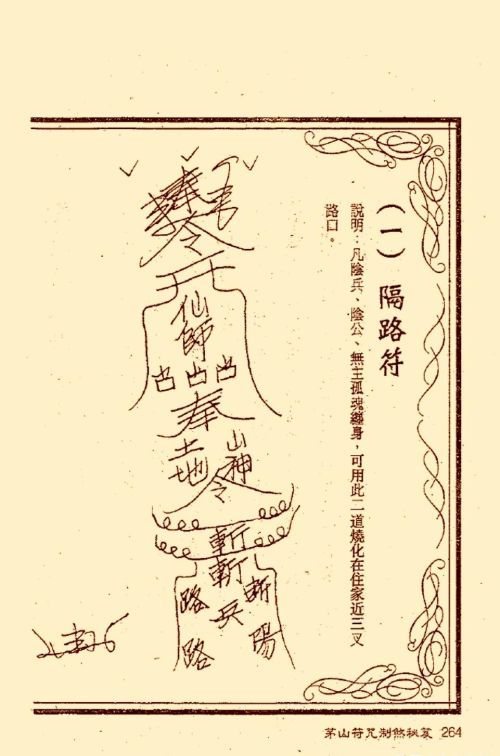 (一) 隔路符
說明：凡陰兵、陰公、無主孤魂纏身，可用此二道燒化在住家近三叉
路口。
奉
令
仙師
凸凸凸
奉
土地
山神
令
斬
斬
路 兵 斬
路 陽
茅山符咒制煞秘笈 264